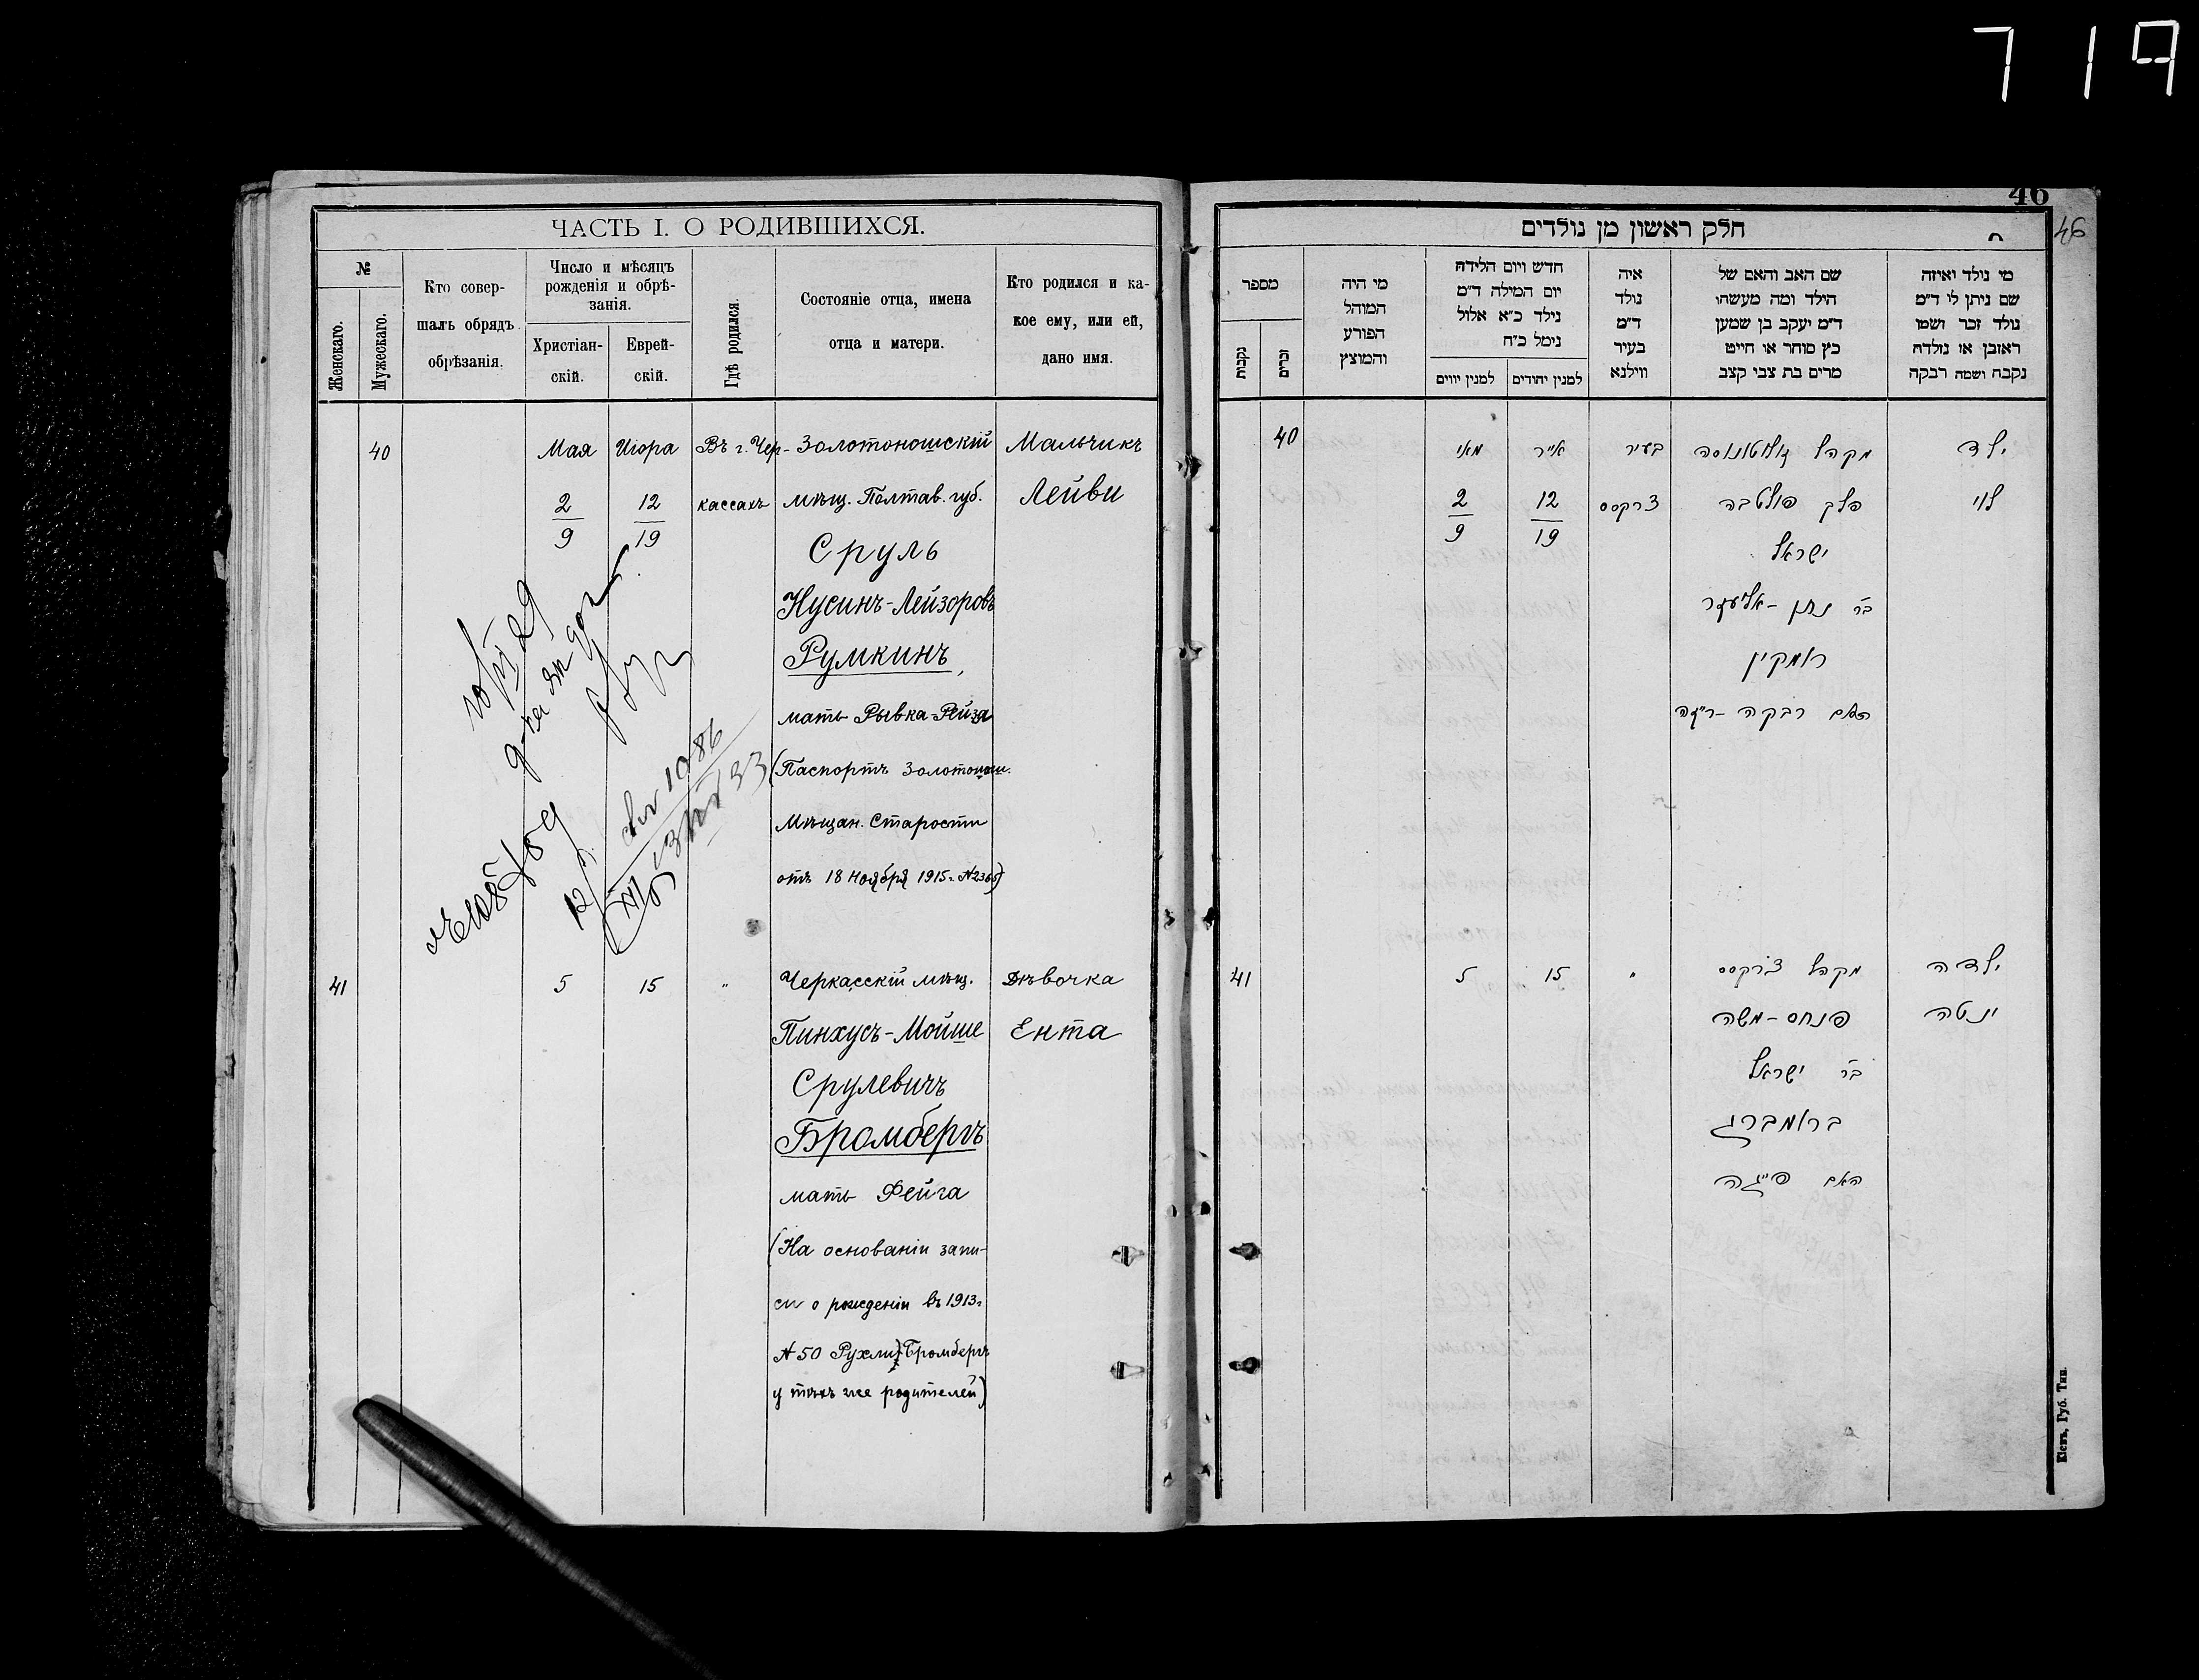 719
46
46
ЧАСТЬ I. О РОДИВШИХСЯ.
№
Женскаго.
Мужескаго.
Кто совер-
шалъ обрядъ
обрѣзанія.
Число и мѣсяцъ
рожденія и обрѣ-
занія.
Христіан-
скій.
Еврей-
скій.
Гдѣ родился.
Состояніе отца, имена
отца и матери.
Кто родился и ка-
кое ему, или ей,
дано имя.
40
Мая
2
9
Иіора
12
19
Въ г. Чер-
кассахъ
Золотоношскій
мѣщ. Полтав. губ.
Сруль
Нусинъ-Лейзоровъ
Румкинъ,
мать Рывка-Рейза
(Паспортъ Золотонош.
Мѣщан. Старосты
отъ 18 ноября 1915г. №2365)
Мальчикъ
Лейви
41
5
15
"
Черкасскій мѣщ.
Пинхусъ-Мойше
Срулевичъ
Бромбергъ
мать Фейга
(На основаніи запи-
си о рожденіи въ 1913г
№50 Рухли Бромбергъ
у тѣхъ же родителей)
Дѣвочка
Ента
חלק ראשון מן נולדים
מספר
נקבות
זכרים
מי היה
המוהל
הפורע
והמוצץ
חדש ויום הלידה
יום המילה ד״מ
נילד כ״א אלול
נימל כ״ח
למנין יווים
למנין יהודים
איה
נולד
ד״מ
בעיר
ווילנא
שם האב והאם של
הילד ומה מעשהו
ד״מ יעקב בן שמען
כץ סוחר או חייט
מרים בת צבי קצב
מי נולד ואיזה
שם ניתן לו ד״מ
נולד זכר ושמו
ראובן או נולדה
נקבה ושמה רבקה
40
מאי
2
9
אייר
12
19
בעיר
צרקסס
מקהל זולוטונוסה
פלך פולטבה
ישראל
בר נתן-אליעזר
רומקין
האם רבקה-ריזה
ילד
לוי
41
5
15
"
מקהל צרקסס
פנחס-משה
בר ישראל
ברומברג
האם פייגה
ילדה
ינטה
Кіевъ, Губ. Тип.